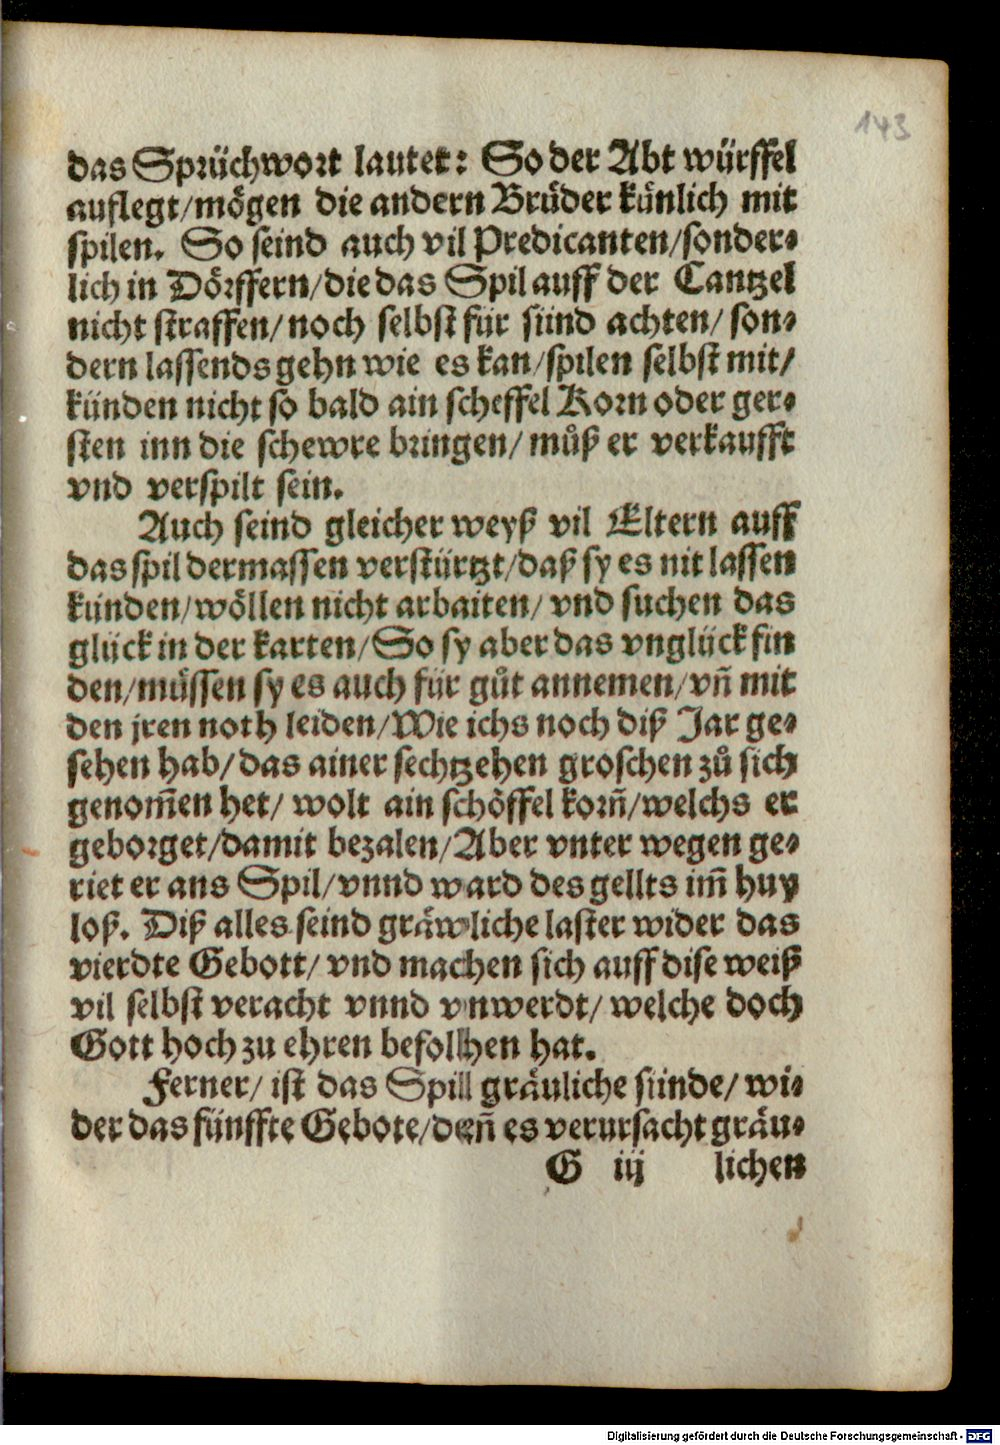 143
das Sprüchwort lautet: So der Abt würffel
auflegt/mögen die andern Brüder künlich mit
spilen. So seind auch vil Predicanten/sonder⸗
lich in Dörffern/die das Spil auff der Cantzel
nicht straffen/noch selbst für sünd achten/ son⸗
dern lassends gehn wie es kan/spilen selbst mit/
künden nicht so bald ain scheffel Korn oder ger⸗
sten inn die schewre bringen/ můß er verkaufft
vnd verspilt sein.
Auch seind gleicher weyß vil Eltern auff
das spil dermassen verstürtzt/daß sy es nit lassen
künden/wöllen nicht arbaiten/ vnd suchen das
glück in der karten/So sy aber das vnglück fin
den/müssen sy es auch für gůt annemen/vñ mit
den jren noth leiden/Wie ichs noch diß Jar ge⸗
sehen hab/das ainer sechtzehen groschen zů sich
genom̃en het/ wolt ain schöffel korñ/welchs er
geborget/damit bezalen/Aber vnter wegen ge⸗
riet er ans Spil/vnnd ward des gellts im̃ huy
loß. Diß alles seind gräwliche laster wider das
vierdte Gebott/ vnd machen sich auff dise weiß
vil selbst veracht vnnd vnwerdt/ welche doch
Gott hoch zu ehren befolhen hat.
Ferner/ ist das Spill gräuliche sünde/ wi⸗
der das fünffte Gebote/deñ es verursacht gräu⸗
G iij lichen
Digitalisierung gefördert durch die Deutsche Forschungsgemeinschaft - DFG